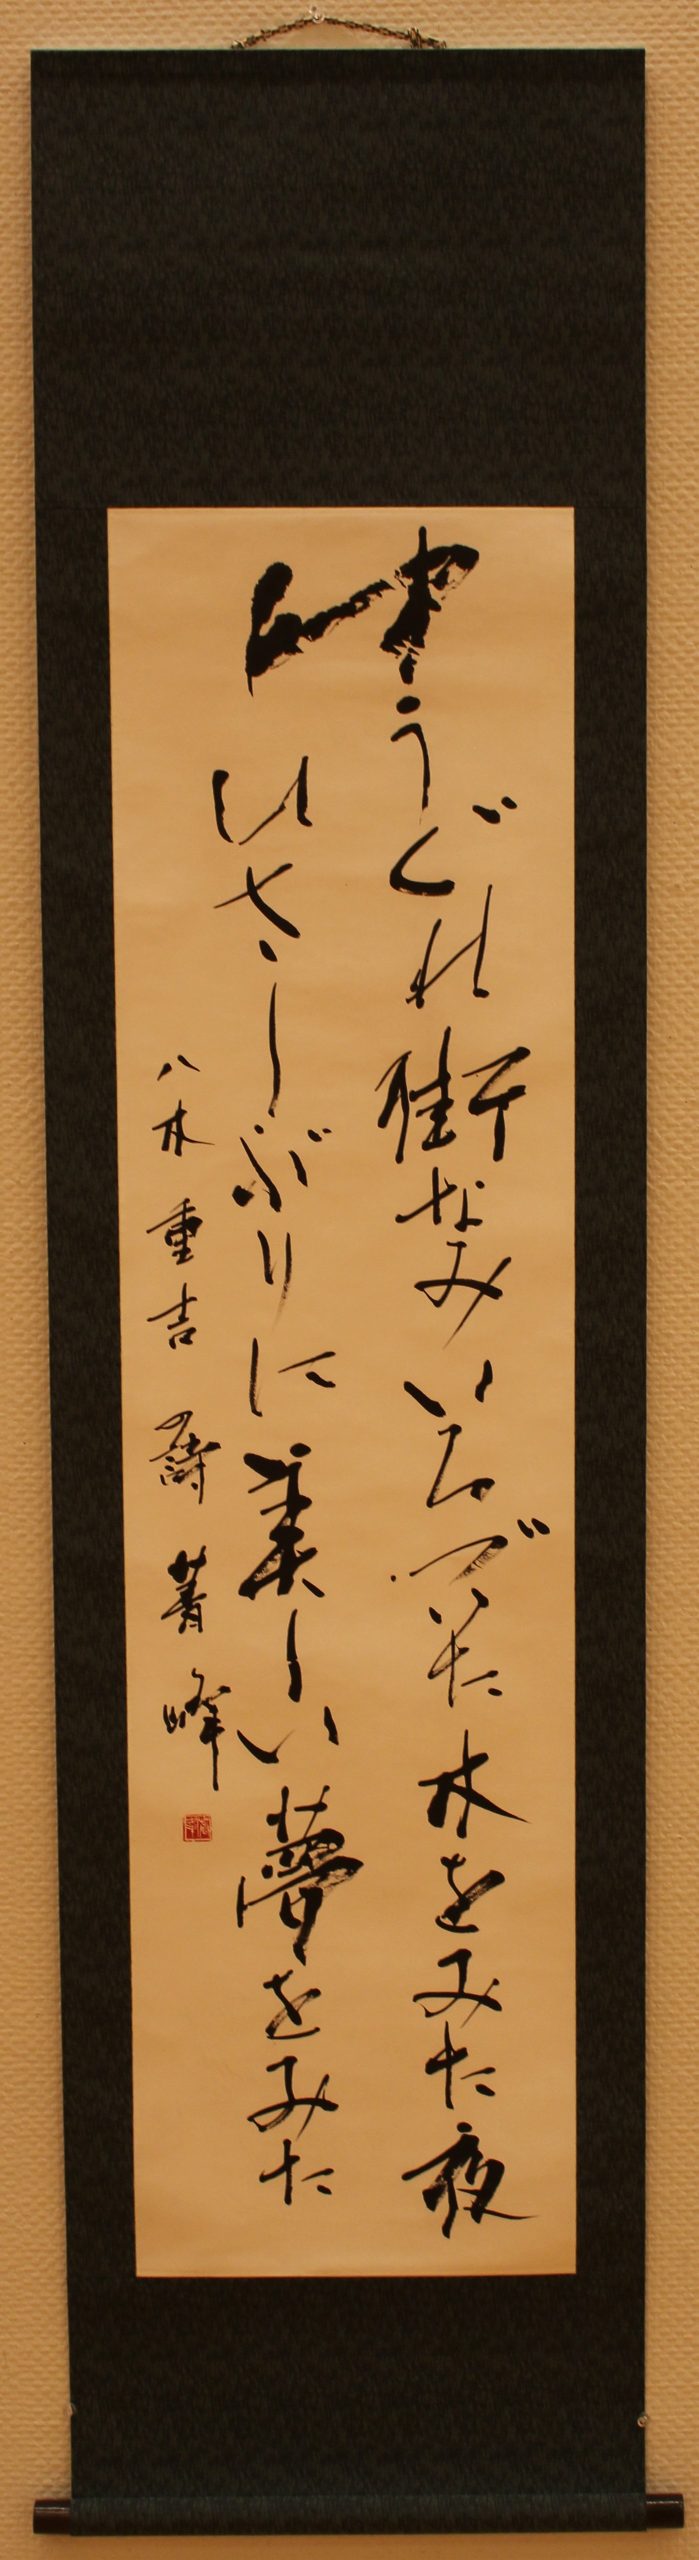 ゆうぐれ街なみいろづいた木をみた夜
ひさしぶりに美しい夢をみた
八木重吉詩 菁峰